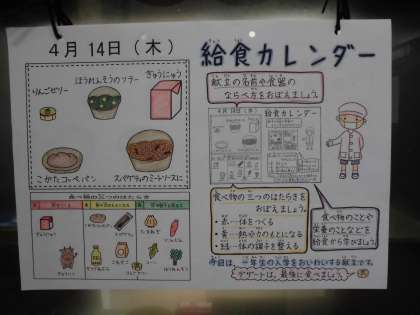 4月 14日（木）
ほうれんそうのソテー
ぎゅうにゅう
りんごゼリー
こがたコッペパン
スパゲティのミートソースに
食べ物の三つのはたらき
給食カレンダー
献立の名前や食器の
ならべ方をおぼえましょう。
4月 14日（木）
給食カレンダー
食べ物の三つのはたらきを
おぼえましょう。
・赤…体をつくる
・黄…熱や力のもとになる
・緑…体の調子を整える
食べ物のことや
栄養のことなどを
給食から学びましょう。
今日は、一年生の入学をおいわいする献立です。
デザートは、最後に食べましょう。